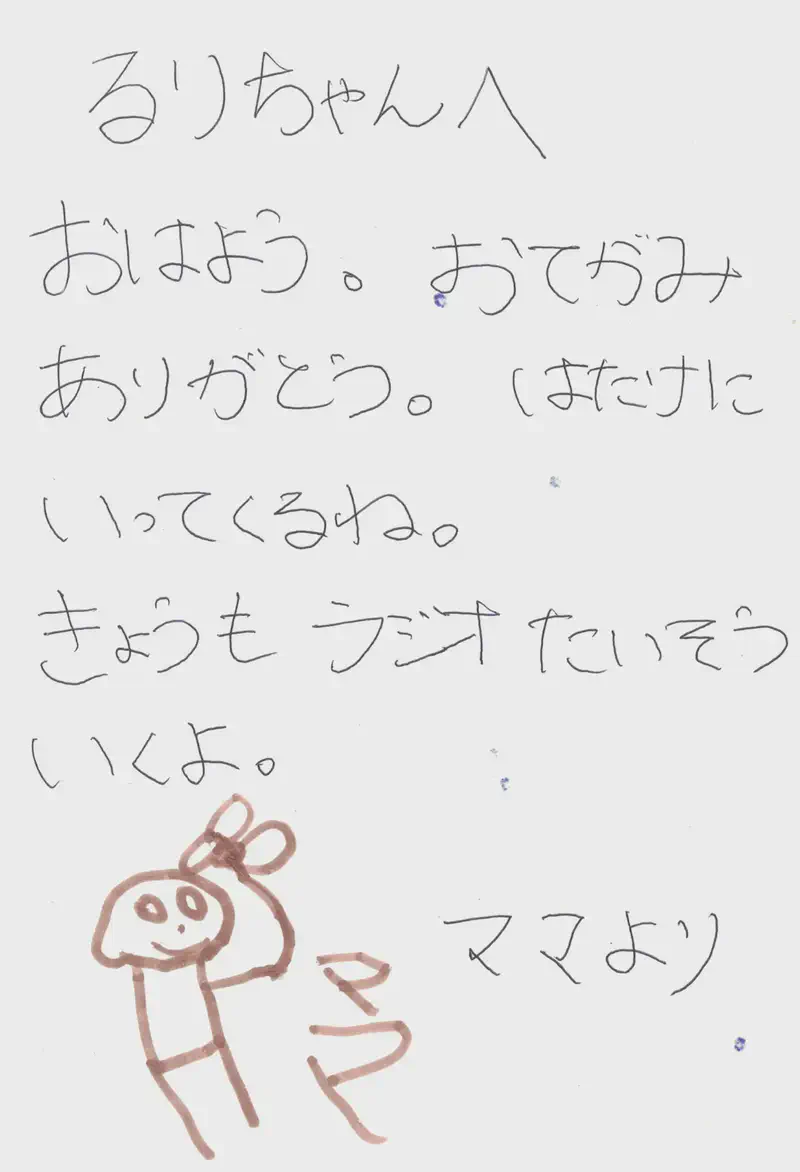 るりちゃんへ
おはよう。 おてがみ
ありがとう。 はたけに
いってくるね。
きょうも ラジオ たいそう
いくよ。
ママより
ママ